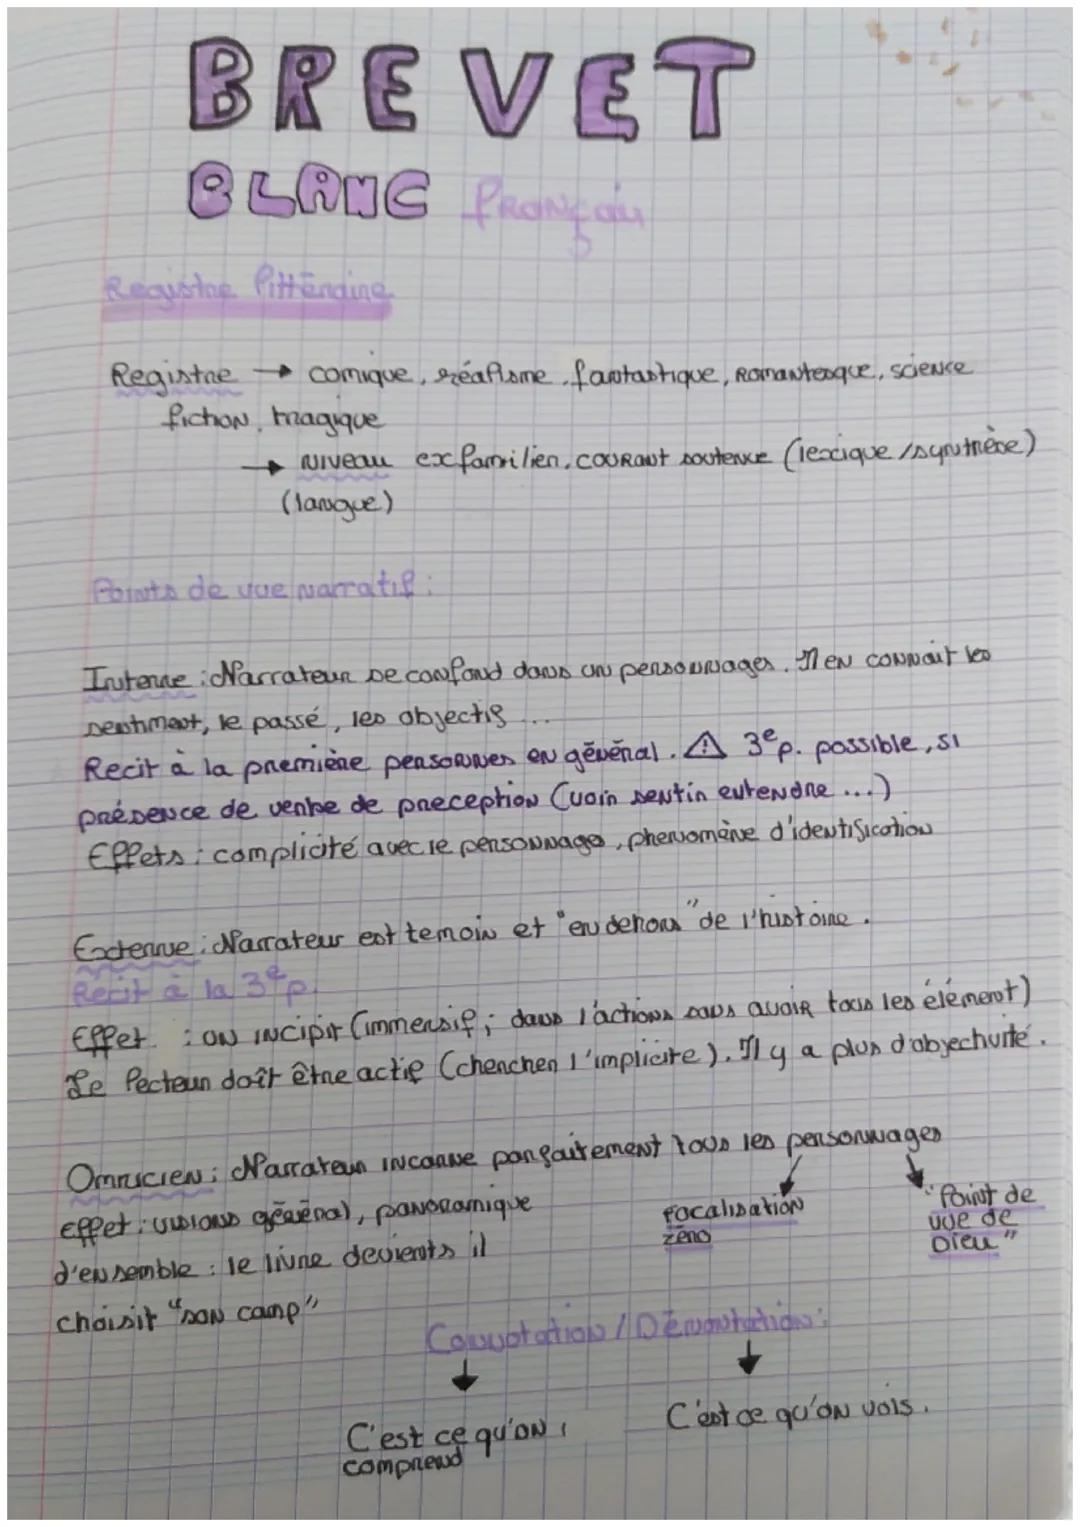 BREVET
BLANC français
Registre littéraire
Registre → comique, réalisme, fantastique, Romantesque, science
fiction, tragique
→ Niveau ex familier, courant soutenue (lexique/synthèse)
(langue)
Points de vue narratif :
Interne : Narrateur se confond dans un personnages. Il en connait les
sentiment, le passé, les objectifs ...
Recit à la première personnes en général. ⚠ 3e p. possible, si
présence de verbe de preception (voir sentir entendre ...)
Effets : complicité avec le personnage, phenomène d'identification
Externe : Narrateur est temoin et "en dehors" de l'histoire.
Recit à la 3e p.
Effet : on incipit (immersif ; dans l'actions sans avoir tous les élément)
Le lecteur doît être actif (chercher l'implicite). Il y a plus d'objectivité.
Omnicien : Narrateur incarne parfaitement tous les personnages
Effet : visions général, panoramique
d'ensemble : le livre devients il
choisit "son camp"
Focalisation
zéro
"Point de
vue de
Dieu"
Connotation / Dénontation :
C'est ce qu'on
comprend
C'est ce qu'on vois.